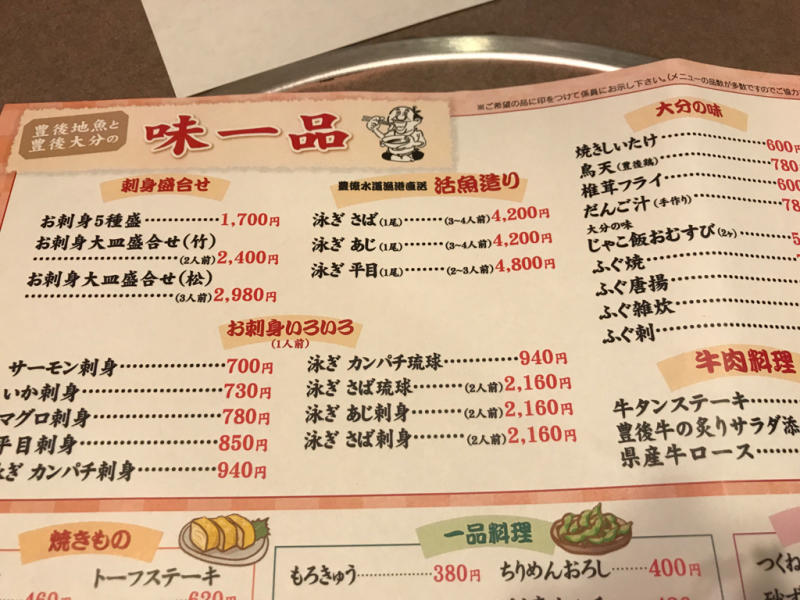 ※ご希望の品に印をつけて係員にお示し下さい。(メニューの品数が多数ですのでご協力
豊後地魚と
豊後大分の
味一品
刺身盛合せ
お刺身5種盛…………1,700円
お刺身大皿盛合せ(竹)
……………………(2人前)2,400円
お刺身大皿盛合せ(松)
……………………(3人前)2,980円
豊後水道漁港直送 活魚造り
泳ぎ さば(1尾)………(3~4人前)4,200円
泳ぎ あじ(1尾)………(3~4人前)4,200円
泳ぎ 平目(1尾)………(2~3人前)4,800円
お刺身いろいろ
(1人前)
サーモン刺身……………700円
いか刺身…………………730円
マグロ刺身………………780円
平目刺身…………………850円
泳ぎ カンパチ刺身………940円
泳ぎ カンパチ琉球…………940円
泳ぎ さば琉球………(2人前)2,160円
泳ぎ あじ刺身………(2人前)2,160円
泳ぎ さば刺身………(2人前)2,160円
大分の味
焼きしいたけ……………600円
鳥天(豊後鶏)……………780
椎茸フライ………………600
だんご汁(手作り)………78
大分の味
じゃこ飯おむすび(2ヶ)……5
ふぐ焼……………………
ふぐ唐揚…………………
ふぐ雑炊…………………
ふぐ刺……………………
牛肉料理
牛タンステーキ…………
豊後牛の炙りサラダ添
県産牛ロース……………
焼きもの
460円
トーフステーキ
620円
一品料理
もろきゅう……………380円
ちりめんおろし………400円
つくね